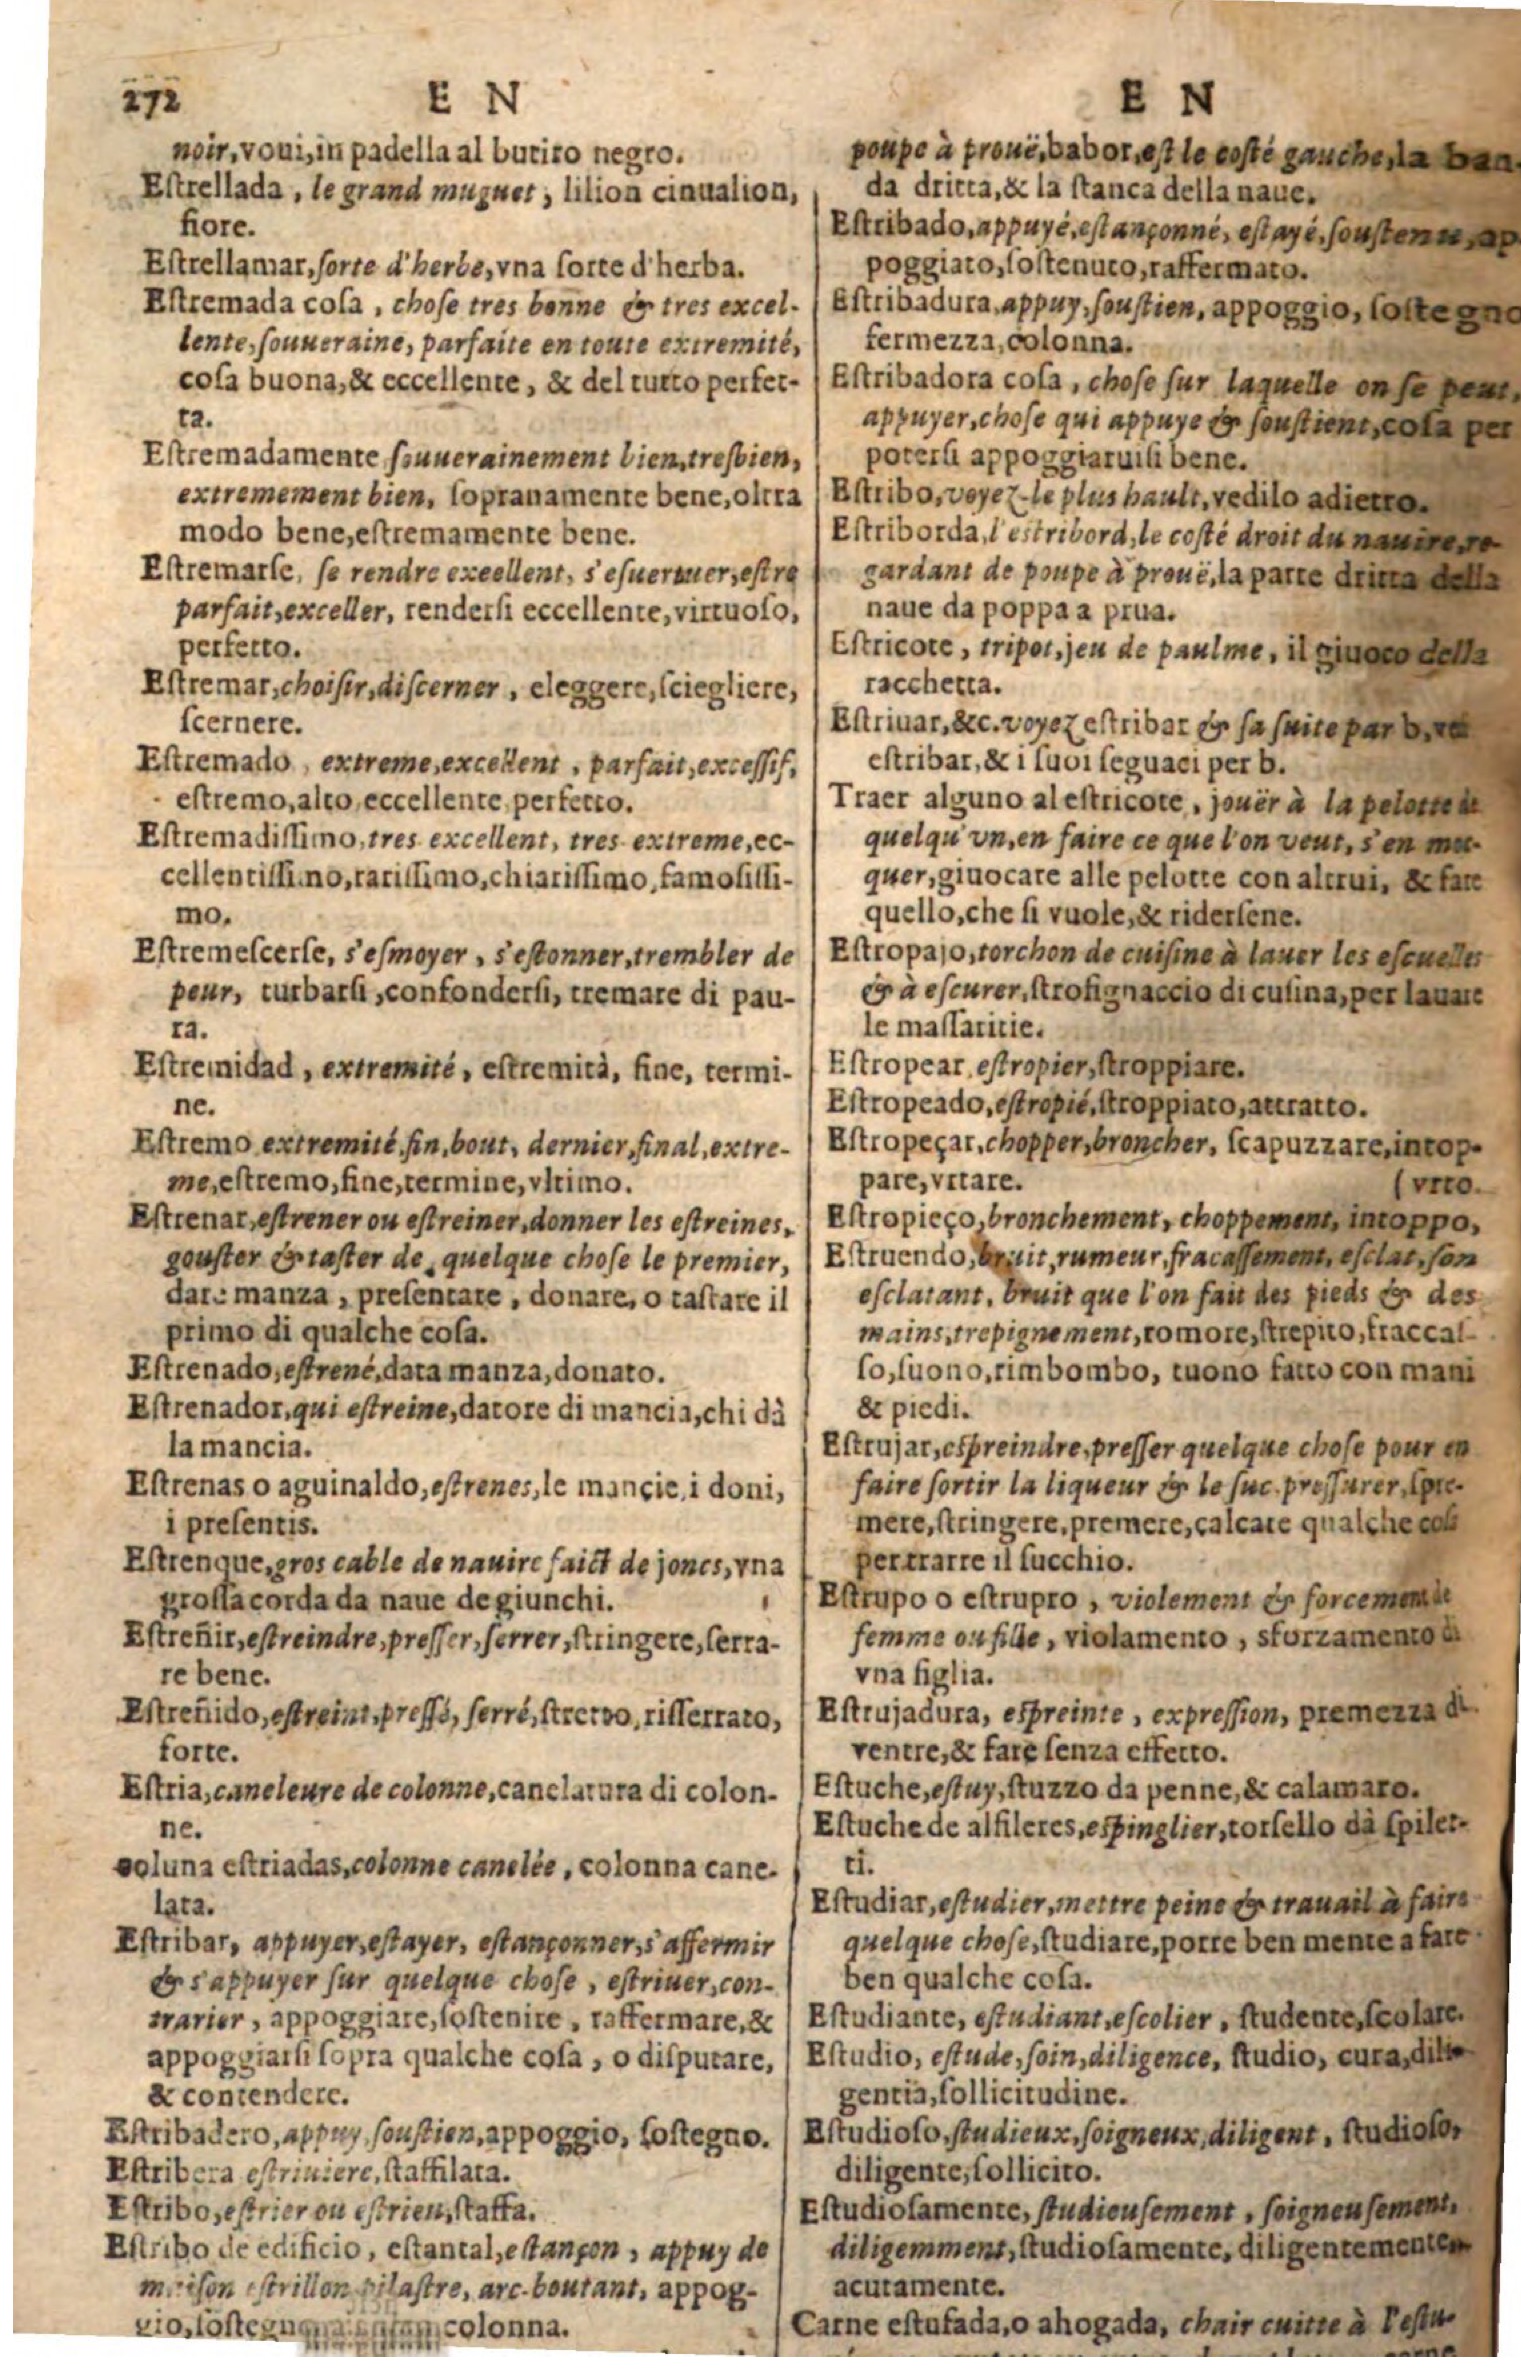 272 E N E N
noir, voui, in padella al butiro negro.
Eſtrellada, le grand muguet, lilion cinualion,
fiore.
Eſtrellamar, ſorte d'herbe, vna ſorte d'herba.
Eſtremada coſa, choſe tres bonne & tres excel-
lente, ſouueraine, parfaite en toute extremité,
coſa buona, & eccellente, & del tutto perfet-
ta.
Eſtremadamente ſouuerainement bien, treſbien,
extremement bien, ſopranamente bene, oltra
modo bene, eſtremamente bene.
Eſtremarſe, ſe rendre exeellent, s'eſuertuer, eſtre
parfait, exceller, renderſi eccellente, virtuoſo,
perfetto.
Eſtremar, choiſir, diſcerner, eleggere, ſciegliere,
ſcernere.
Eſtremado, extreme, excellent, parfait, exceſſif,
eſtremo, alto eccellente perfetto.
Eſtremadiſſimo, tres excellent, tres extreme, ec-
cellentiſſimo, rariſſimo, chiariſſimo, famoſiſſi-
mo.
Eſtremeſcerſe, s'eſmoyer, s'eſtonner, trembler de
peur, turbarſi, confonderſi, tremare di pau-
ra.
Eſtremidad, extremité, eſtremità, fine, termi-
ne.
Eſtremo extremité, fin, bout, dernier, final, extre-
me, eſtremo, fine, termine, vltimo.
Eſtrenar, eſtrener ou eſtreiner, donner les eſtreines,
gouſter & taſter de quelque choſe le premier,
dare manza, preſentare, donare, o taſtare il
primo di qualche coſa.
Eſtrenado, eſtrené, data manza, donato.
Eſtrenador, qui eſtreine, datore di mancia, chi dà
la mancia.
Eſtrenas o aguinaldo, eſtrenes, le mançie, i doni,
i preſentis.
Eſtrenque, gros cable de nauire faict de joncs, vna
groſſa corda da naue de giunchi.
Eſtreñir, eſtreindre, preſſer, ſerrer, ſtringere, ſerra-
re bene.
Eſtreñido, eſtreint, preſſé, ſerré, ſtretto, riſſerrato,
forte.
Eſtria, caneleure de colonne, canelatura di colon-
ne.
coluna eſtriadas, colonne canelée, colonna cane-
lata.
Eſtribar, appuyer, eſtayer, eſtançonner, s'affermir
& s'appuyer ſur quelque choſe, eſtriuer, con-
trarier, appoggiare, ſoſtenire, raffermare, &
appoggiarſi ſopra qualche coſa, o diſputare,
& contendere.
Eſtribadero, appuy, ſouſtien, appoggio, ſoſtegno.
Eſtribera eſtriuiere, ſtaffilata.
Eſtribo, eſtrier ou eſtrieu, ſtaffa.
Eſtribo de edificio, eſtantal, eſtançon, appuy de
maiſon eſtrillon pilaſtre, arc-boutant, appog-
gio, ſoſtegno colonna.
poupe à prouë, babor, eſt le coſté gauche, la ban-
da dritta, & la ſtanca della naue.
Eſtribado, appuyé, eſtançonné, eſtayé, ſouſtenu, ap
poggiato, ſoſtenuto, raffermato.
Eſtribadura, appuy, ſouſtien, appoggio, ſoſtegno
fermezza, colonna.
Eſtribadora coſa, choſe ſur laquelle on ſe peut,
appuyer, choſe qui appuye & ſouſtient, coſa per
poterſi appoggiaruiſi bene.
Eſtribo, voyez-le plus hault, vedilo adietro.
Eſtriborda, l'eſtribord, le coſté droit du nauire, re-
gardant de poupe à prouë, la parte dritta della
naue da poppa a prua.
Eſtricote, tripot, jeu de paulme, il giuoco della
racchetta.
Eſtriuar, &c. voyez eſtribar & ſa ſuite par b, ve
eſtribar, & i ſuoi ſeguaci per b.
Traer alguno al eſtricote, jouër à la pelotte de
quelqu'vn, en faire ce que l'on veut, s'en moc-
quer, giuocare alle pelotte con altrui, & fare
quello, che ſi vuole, & riderſene.
Eſtropajo, torchon de cuiſine à lauer les eſcuelles
& à eſcurer, ſtrofignaccio di cuſina, per lauare
le maſſaritie.
Eſtropear eſtropier, ſtroppiare.
Eſtropeado, eſtropié, ſtroppiato, attratto.
Eſtropeçar, chopper, broncher, ſcapuzzare, intop-
pare, vrtare. (vrto.
Eſtropieço, bronchement, choppement, intoppo,
Eſtruendo, bruit, rumeur, fracaſſement, eſclat, ſon
eſclatant, bruit que l'on fait des pieds & des
mains, trepignement, romore, ſtrepito, fraccaſ-
ſo, ſuono, rimbombo, tuono fatto con mani
& piedi.
Eſtrujar, eſpreindre, preſſer quelque choſe pour en
faire ſortir la liqueur & le ſuc. preſſurer, ſpre-
mere, ſtringere, premere, calcare qualche coſa
per trarre il ſucchio.
Eſtrupo o eſtrupro, violement & forcement de
femme ou fille, violamento, sforzamento di
vna figlia.
Eſtrujadura, eſpreinte, expreſſion, premezza di
ventre, & fare ſenza effetto.
Eſtuche, eſtuy, ſtuzzo da penne, & calamaro.
Eſtuche de alfileres, eſpinglier, torſello dà ſpilet-
ti.
Eſtudiar, eſtudier, mettre peine & trauail à faire
quelque choſe, ſtudiare, porre ben mente a fare
ben qualche coſa.
Eſtudiante, eſtudiant, eſcolier, ſtudente, ſcolare.
Eſtudio, eſtude, ſoin, diligence, ſtudio, cura, dili-
gentia, ſollicitudine.
Eſtudioſo, ſtudieux, ſoigneux, diligent, ſtudioſo,
diligente, ſollicito.
Eſtudioſamente, ſtudieuſement, ſoigneuſement,
diligemment, ſtudioſamente, diligentemente,
acutamente.
Carne eſtufada, o ahogada, chair cuitte à l'eſtu-